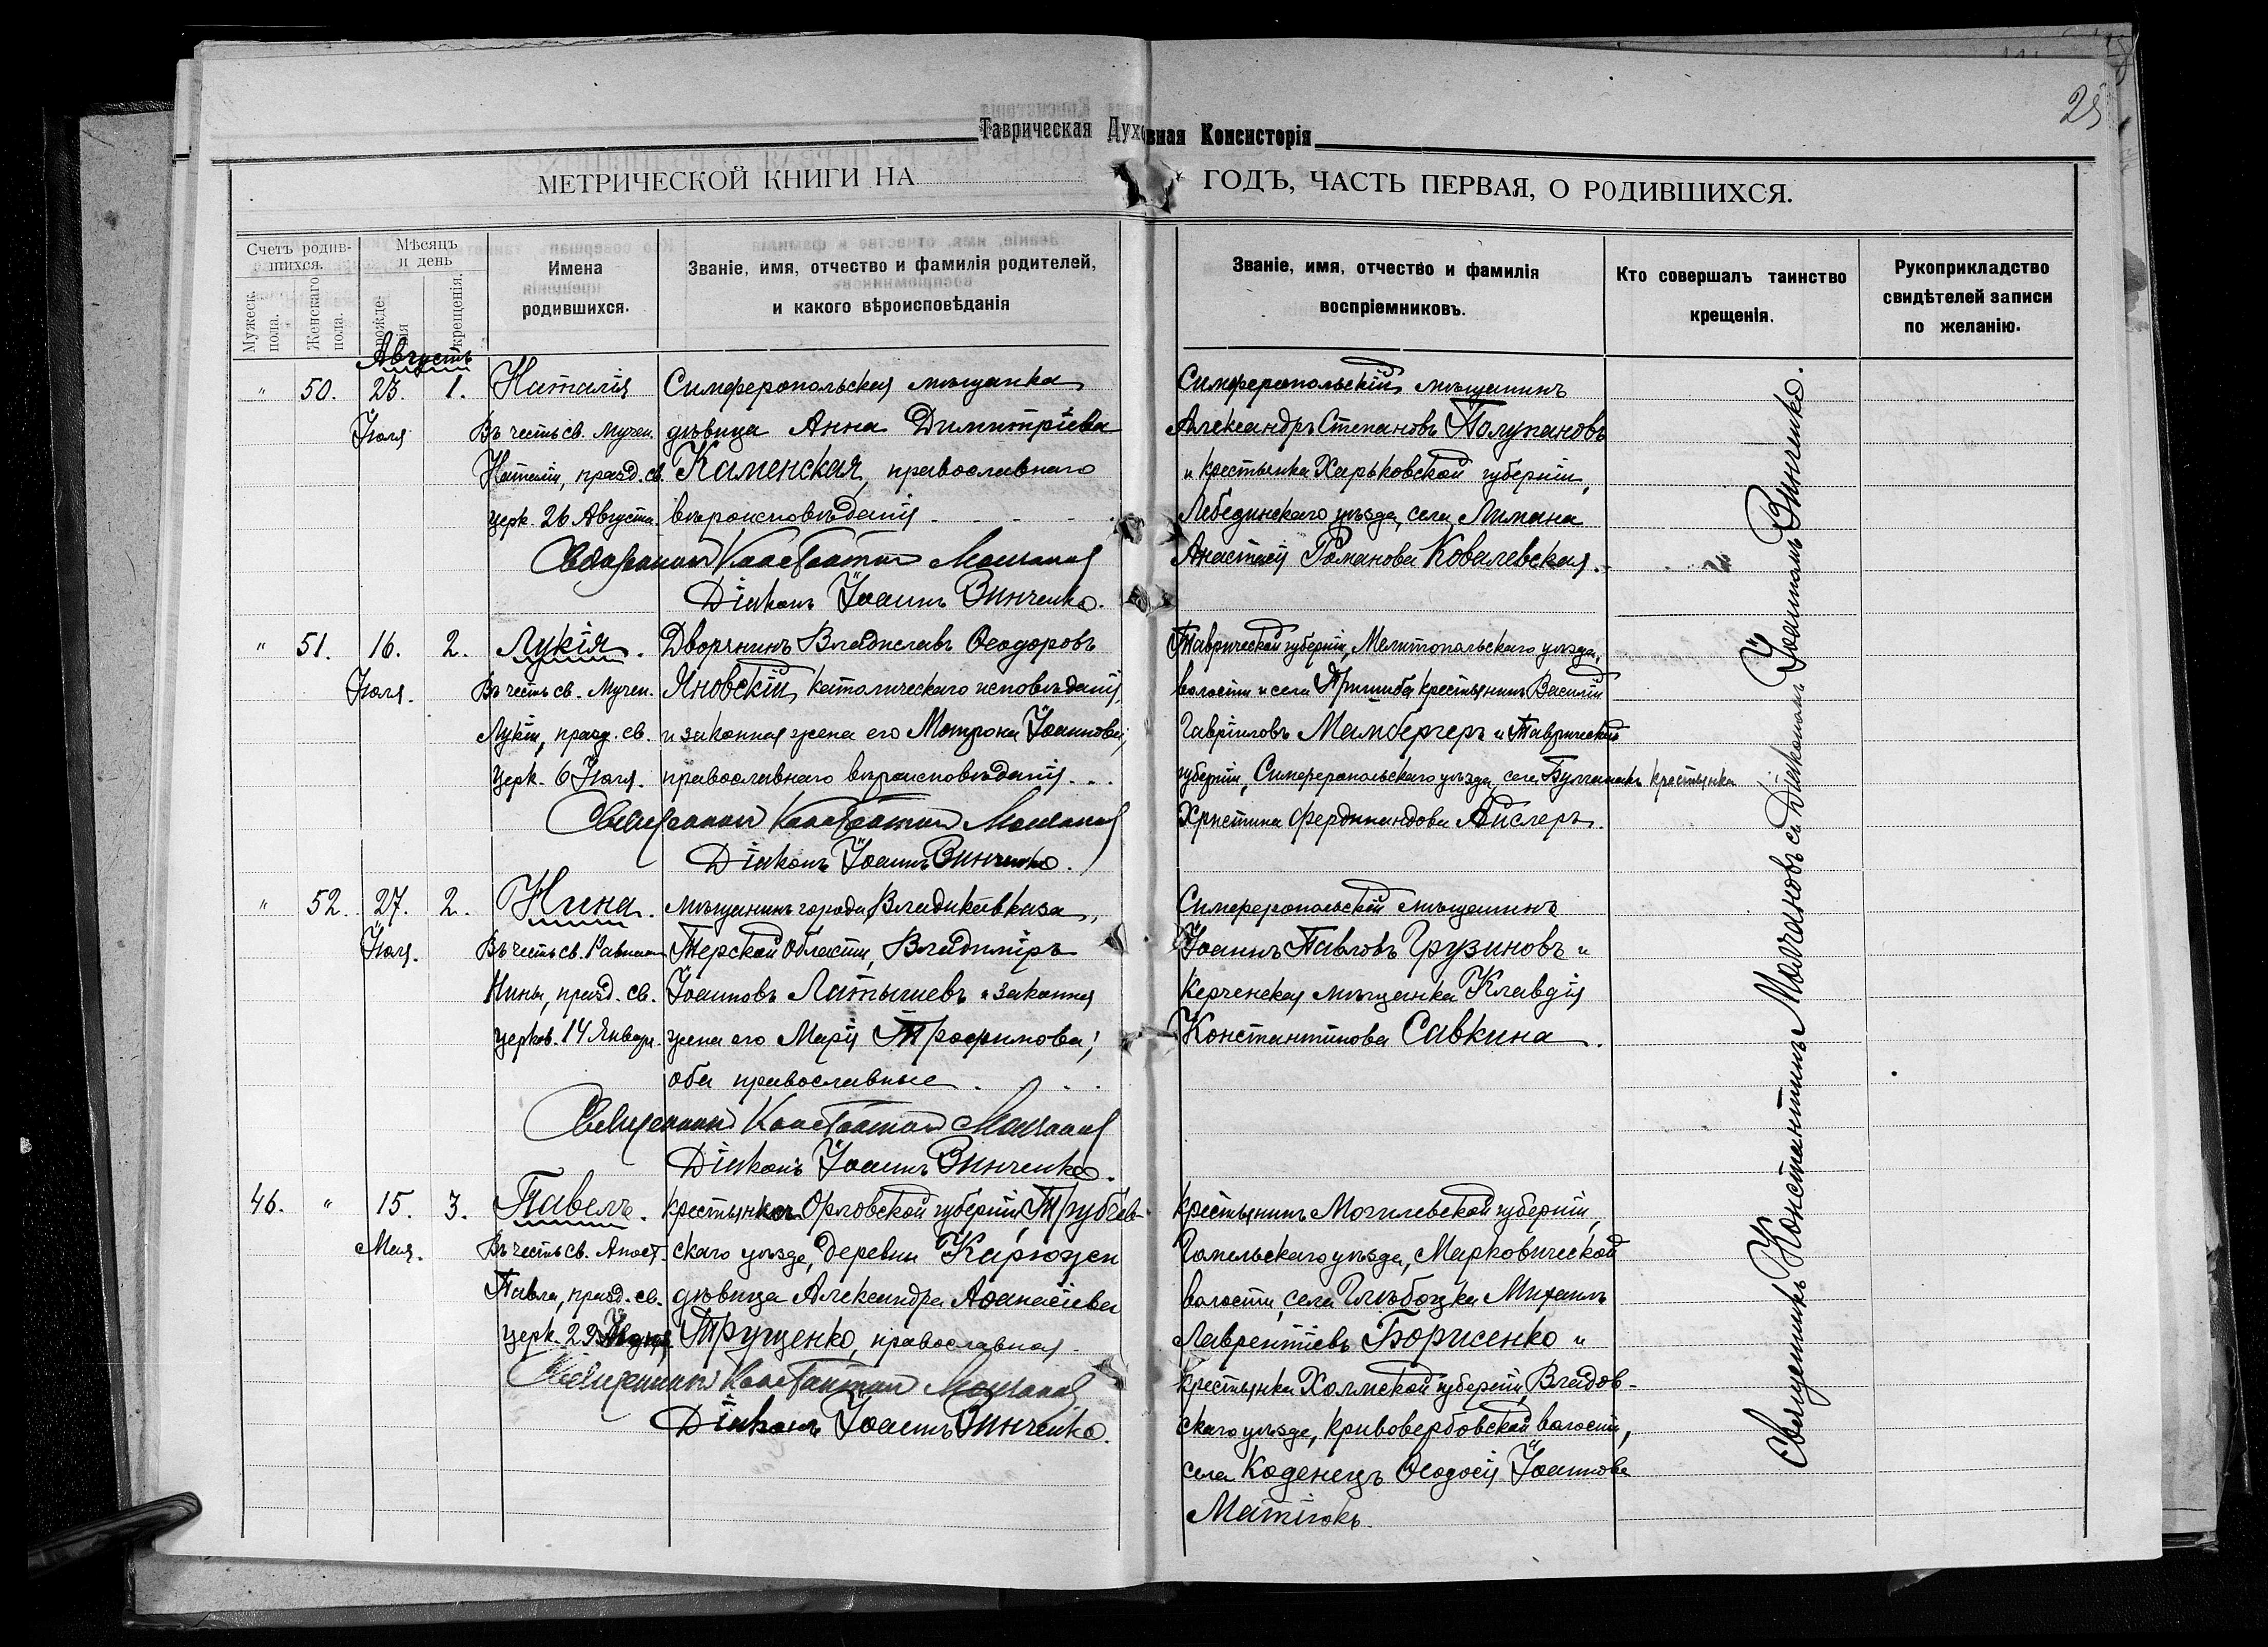 25
Таврическая Духовная Консисторія
МЕТРИЧЕСКОЙ КНИГИ НА ГОДЪ, ЧАСТЬ ПЕРВАЯ, О РОДИВШИХСЯ.
Счетъ родив-
шихся.
Мужеск. пола.
Женскаго пола.
Мѣсяцъ
и день
рожде-
нія
крещенія.
Имена
родившихся.
Званіе, имя, отчество и фамилія родителей,
и какого вѣроисповѣданія
Званіе, имя, отчество и фамилія
воспріемниковъ.
Кто совершалъ таинство
крещенія.
Рукоприкладство
свидѣтелей записи
по желанію.
Августъ
" 50. 23. 1. Наталія
Іюля
Въ честь св. Мучен.
Наталіи, празд. св.
церк. 26 Августа.
Симферопольская мѣщанка
дѣвица Анна Димитріева
Каменская, православнаго
вѣроисповѣданія
Священникъ Константинъ Молчановъ
Діаконъ Іоаннъ Зинченко.
Симферопольскій мѣщанинъ
Александръ Степановъ Полупановъ
и крестьянка Харьковской губерніи,
Лебединскаго уѣзда, села Лимана
Анастасія Романова Ковалевская.
" 51. 16. 2. Лукія.
Іюля.
Въ честь св. Мучен.
Лукіи, празд. св.
церк. 6 Іюля.
Дворянинъ Владиславъ Ѳеодоровъ
Яновскій, католическаго исповѣданія,
и законная жена его Матрона Іоаннова,
православнаго вѣроисповѣданія.
Священникъ Константинъ Молчановъ
Діаконъ Іоаннъ Зинченко.
Таврической губерніи, Мелитопольскаго уѣзда,
волости и села Пришиба крестьянинъ Василій
Гавріиловъ Мамбергеръ и Таврической
губерніи, Симферопольскаго уѣзда, села Булганакъ крестьянка
Христина Фердинандова Айслеръ.
" 52. 27. 2. Нина.
Іюля.
Въ честь св. Равноап.
Нины, празд. св.
церков. 14 Января.
Мѣщанинъ города Владикавказа,
Терской Области, Владиміръ
Іоанновъ Латышевъ и законная
жена его Марія Трофимова;
оба православные.
Священникъ Константинъ Молчановъ
Діаконъ Іоаннъ Зинченко.
Симферопольскій мѣщанинъ
Іоаннъ Павловъ Грузиновъ и
Керченская мѣщанка Клавдія
Константинова Савкина.
46. " 15. 3. Павелъ.
Мая.
Въ честь св. Апост.
Павла, празд. св.
церк. 29 Іюня.
крестьянка Орловской губерніи, Трубчев-
скаго уѣзда, деревни Карюжен
дѣвица Александра Аѳанасіева
Трущенко, православная.
Священникъ Константинъ Молчановъ
Діаконъ Іоаннъ Зинченко.
крестьянинъ Могилевской губерніи,
Гомельскаго уѣзда, Марковической
волости, села Глыбоцка Михаилъ
Лаврентіевъ Борисенко и
крестьянка Холмской губерніи, Владов-
скаго уѣзда, Кривовербовской волости,
села Коденецъ Ѳеодосія Іоаннова
Матіюкъ.
Священникъ Константинъ Молчановъ съ Діакономъ Іоанномъ Зинченко.